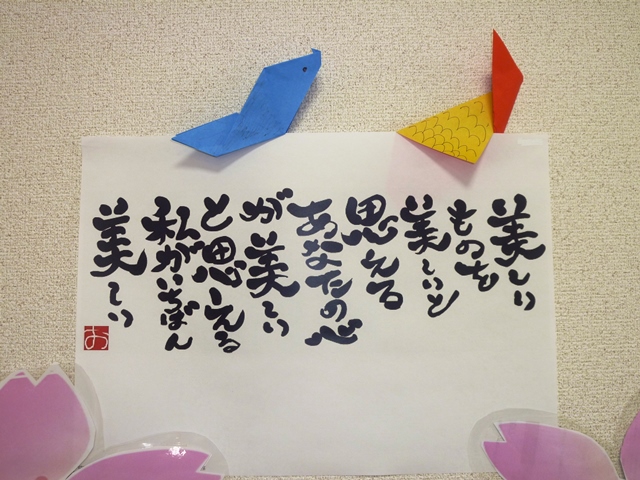 美しい
ものを
美しいと
思える
あなたの心
が美しい
と思える
私がいちばん
美しい
お